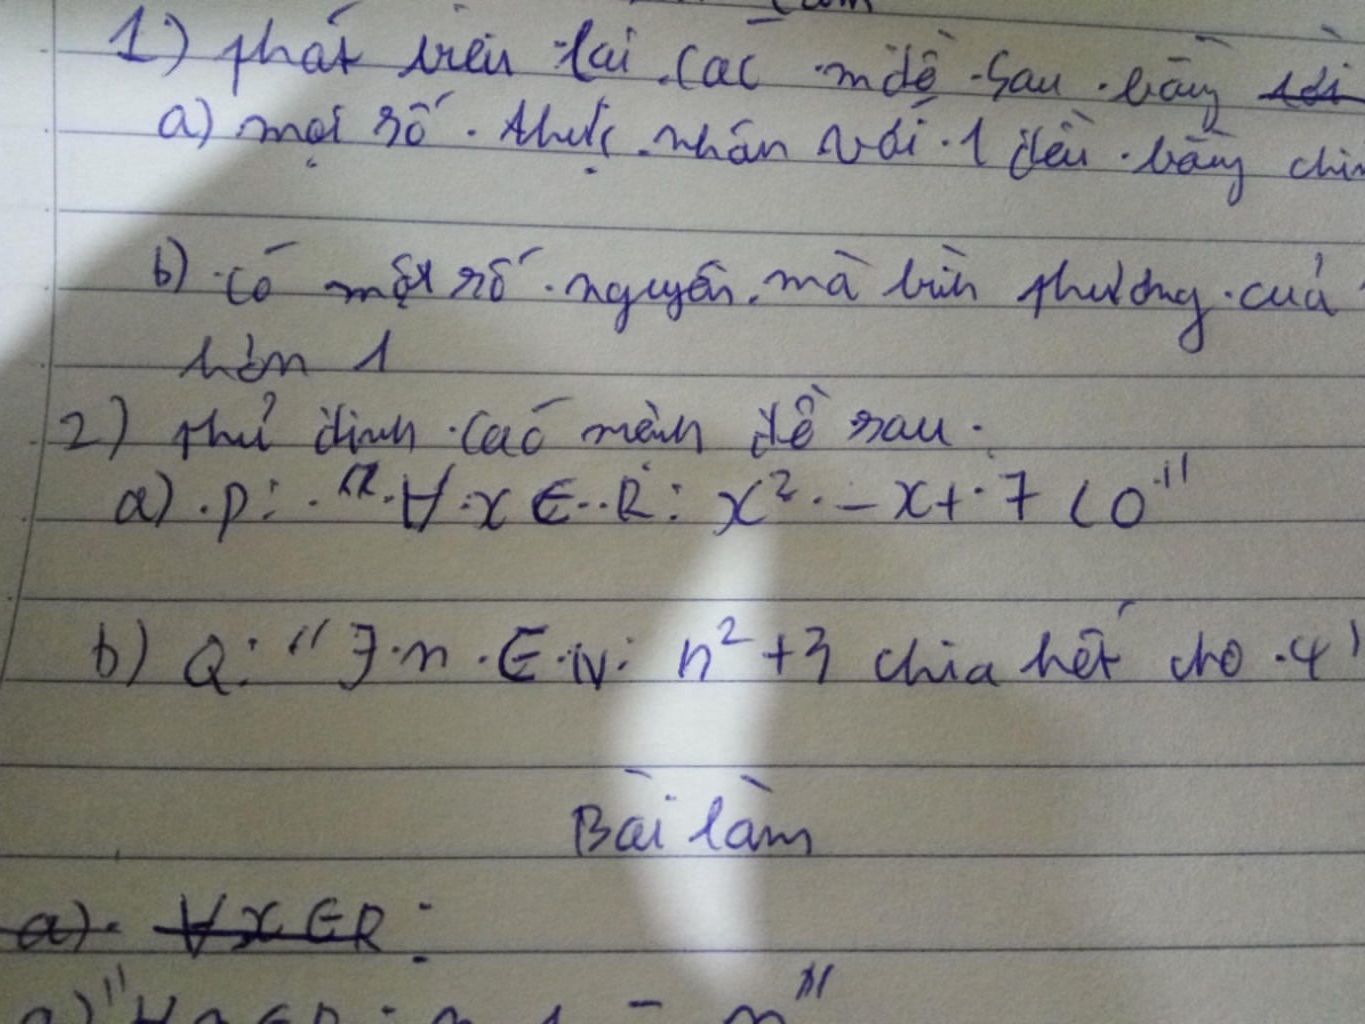 1) phát biểu lại các mđề sau bằng
a) mọi số thực nhân với 1 đều bằng chín
b) có một số nguyên mà bình phương của
hơn 1
2) phủ định các mệnh đề sau.
a) P: "∀ x ∈ R: x² - x + 7 < 0"
b) Q: "∃ n ∈ N: n² + 3 chia hết cho 4"
Bài làm
a) ∀x ∈ R :